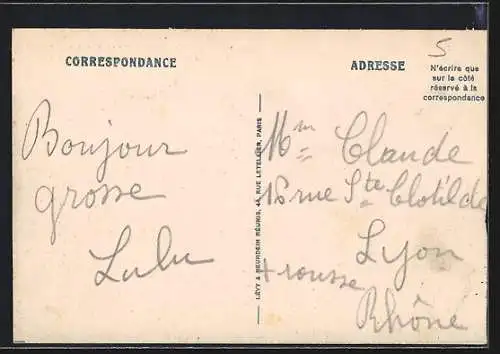 5
CORRESPONDANCE
ADRESSE
N'écrire que
sur le côté
réservé à la
correspondance
Bonjour
grosse
Lulu
LÉVY & NEURDEIN RÉUNIS, 44, RUE LETELLIER, PARIS
Mme Claude
18 rue Ste Clotilde
Lyon
+ rousse
Rhône